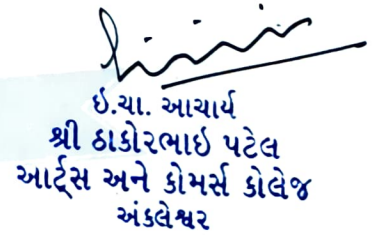 ઇ.ચા. આચાર્ય
શ્રી ઠાકોરભાઇ પટેલ
આર્ટ્સ અને કોમર્સ કોલેજ
અંકલેશ્વર